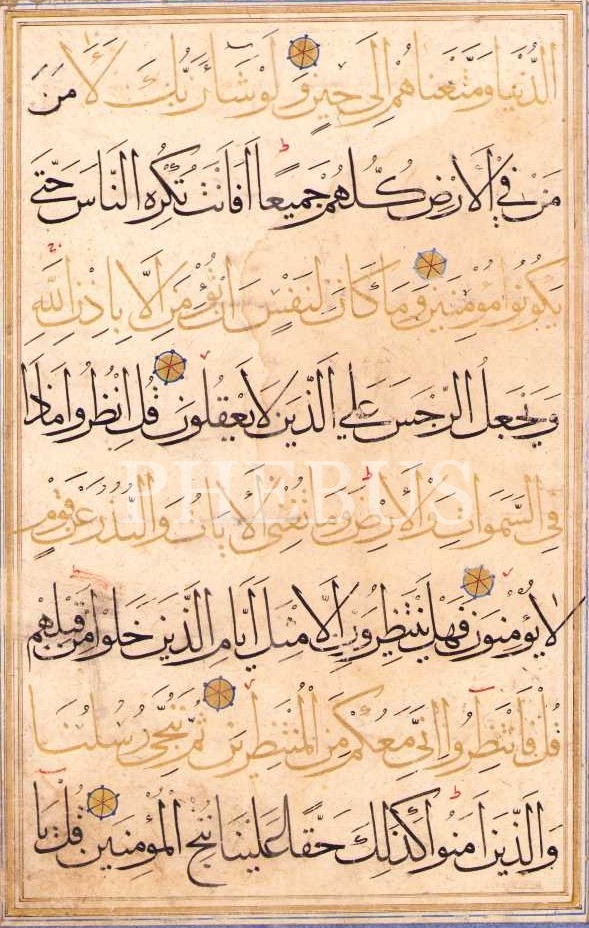 الدُّنْيَا وَمَتَّعْنَاهُمْ إِلَى حِينٍ وَلَوْ شَاءَ رَبُّكَ لَآمَنَ
مَنْ فِي الْأَرْضِ كُلُّهُمْ جَمِيعًا أَفَأَنْتَ تُكْرِهُ النَّاسَ حَتَّى
يَكُونُوا مُؤْمِنِينَ وَمَا كَانَ لِنَفْسٍ أَنْ تُؤْمِنَ إِلَّا بِإِذْنِ اللَّهِ
وَيَجْعَلُ الرِّجْسَ عَلَى الَّذِينَ لَا يَعْقِلُونَ قُلِ انْظُرُوا مَاذَا
فِي السَّمَوَاتِ وَالْأَرْضِ وَمَا تُغْنِي الْآيَاتُ وَالنُّذُرُ عَنْ قَوْمٍ
PHEBUS
لَا يُؤْمِنُونَ فَهَلْ يَنْتَظِرُونَ إِلَّا مِثْلَ أَيَّامِ الَّذِينَ خَلَوْا مِنْ قَبْلِهِمْ
قُلْ فَانْتَظِرُوا إِنِّي مَعَكُمْ مِنَ الْمُنْتَظِرِينَ ثُمَّ نُنَجِّي رُسُلَنَا
وَالَّذِينَ آمَنُوا كَذَلِكَ حَقًّا عَلَيْنَا نُنْجِ الْمُؤْمِنِينَ قُلْ يَا